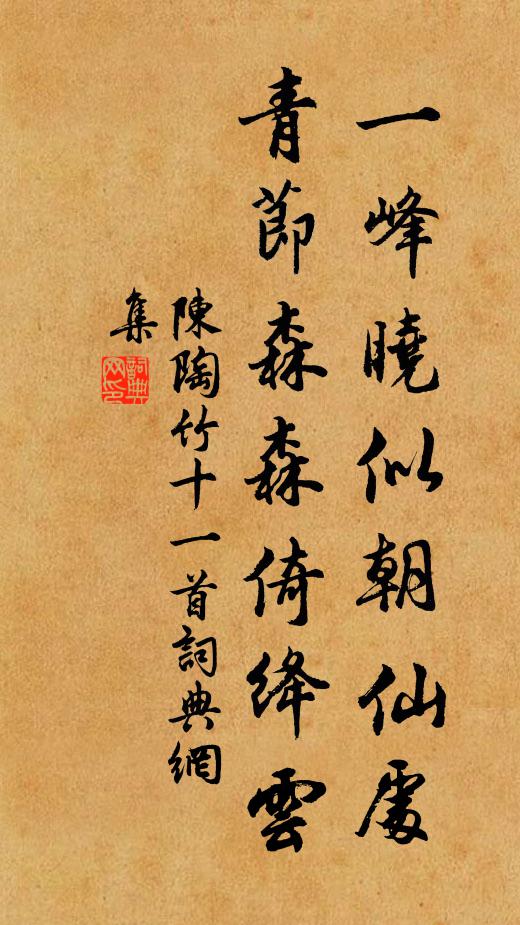 一峰曉似朝仙處
青節森森倚絳雲
陳陶竹十一首詞典網
集
詞典
网印